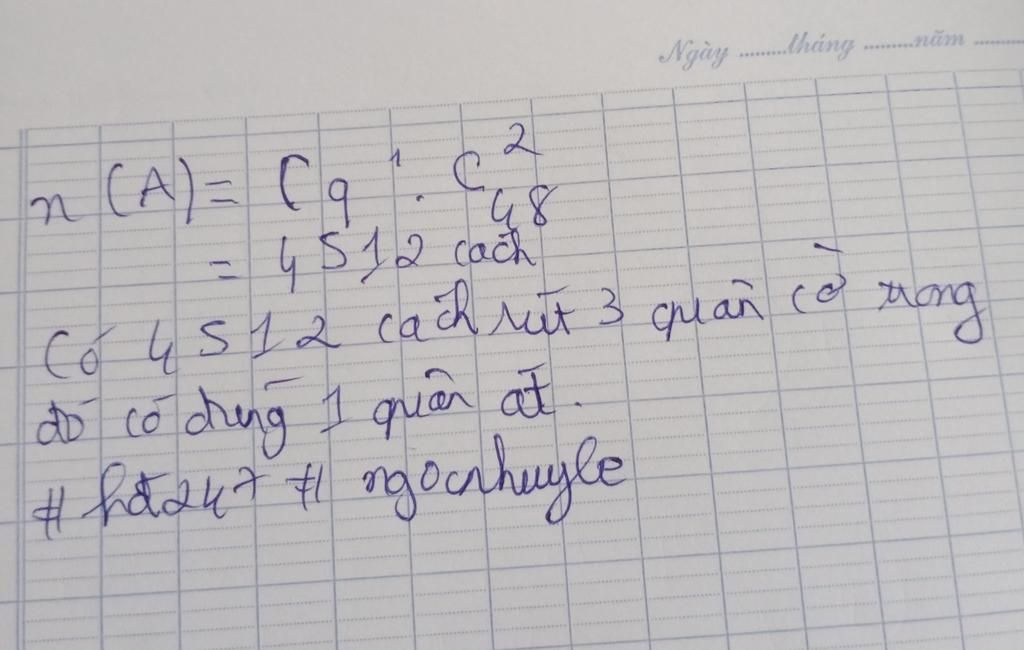 Ngày ..........tháng ..........năm ..........
n (A) = C₉¹ . C₄₈²
= 4512 cách
Có 4512 cách rút 3 quân cờ trong
đó có đúng 1 quân át.
# hđ247 # ngocnhuyle